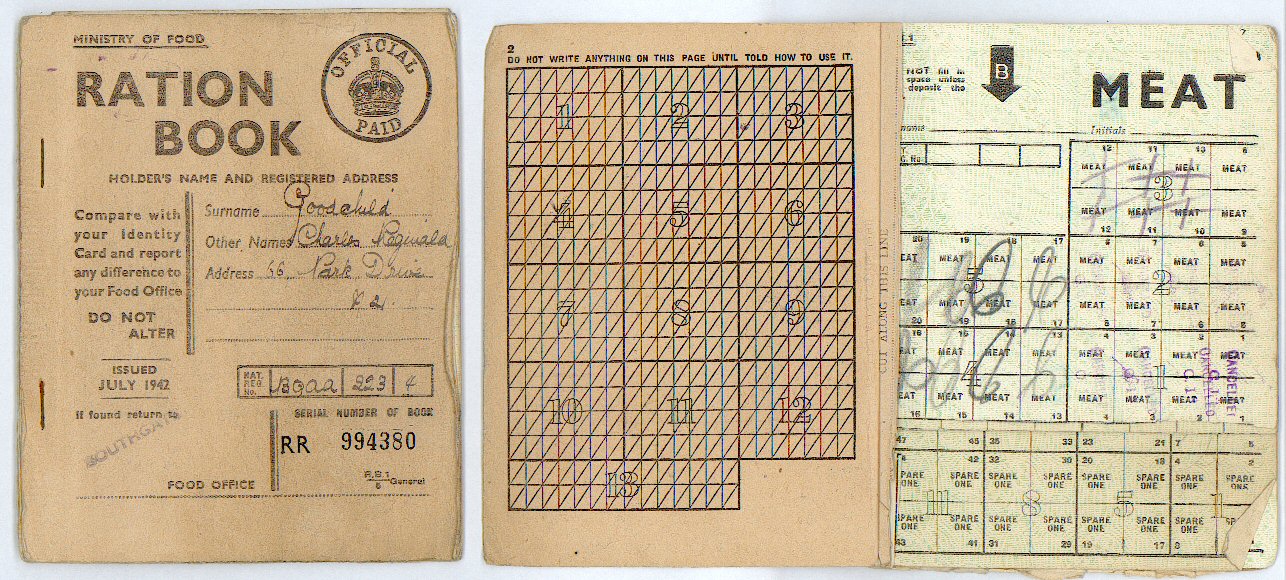 MINISTRY OF FOOD
RATION
BOOK
OFFICIAL
PAID
HOLDER'S NAME AND REGISTERED ADDRESS
Compare with
your Identity
Card and report
any difference to
your Food Office
DO NOT
ALTER
Surname Goodchild
Other Names Charles Reginald
Address 56 Park Drive
ISSUED
JULY 1942
NAT.
REG.
No.
223 4
If found return to
SOUTHGATE
FOOD OFFICE
SERIAL NUMBER OF BOOK
RR 994380
R.B.1
6 General
2
DO NOT WRITE ANYTHING ON THIS PAGE UNTIL TOLD HOW TO USE IT.
1 2 3
4 5 6
7 8 9
10 11 12
13
CUT ALONG THIS LINE
NOT fill in
space unless
deposit the
B
MEAT
Initials
12 11 10 9
MEAT MEAT MEAT MEAT
3
MEAT MEAT MEAT MEAT
12 11 10 9
20 19 18 17 8 7 6 5
MEAT MEAT MEAT MEAT MEAT MEAT MEAT
5 2
MEAT MEAT MEAT MEAT MEAT MEAT MEAT
20 19 18 17 8 7 6 5
16 15 14 13 4 3
MEAT MEAT MEAT MEAT MEAT MEAT
4 1
CANCELLED
MEAT MEAT MEAT MEAT MEAT MEAT MEAT
16 15 14 13 4 3 2 1
47 45 35 33 23 21 7 5
42 32 30 20 18 4 2
SPARE ONE SPARE ONE SPARE ONE SPARE ONE SPARE ONE SPARE ONE SPARE ONE
11 8 5 1
SPARE ONE SPARE ONE SPARE ONE SPARE ONE SPARE ONE SPARE ONE SPARE ONE
43 41 31 29 19 17 3